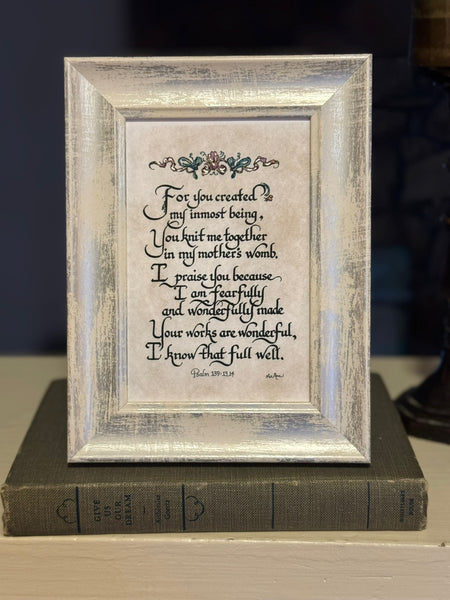 For you created
my inmost being,
You knit me together
in my mother's womb.
I praise you because
I am fearfully
and wonderfully made
Your works are wonderful,
I know that full well.
Psalm 139:13,14
GIVE
US
OUR
DREAM
Arthemise
Goertz
WHITTLESEY
HOUSE